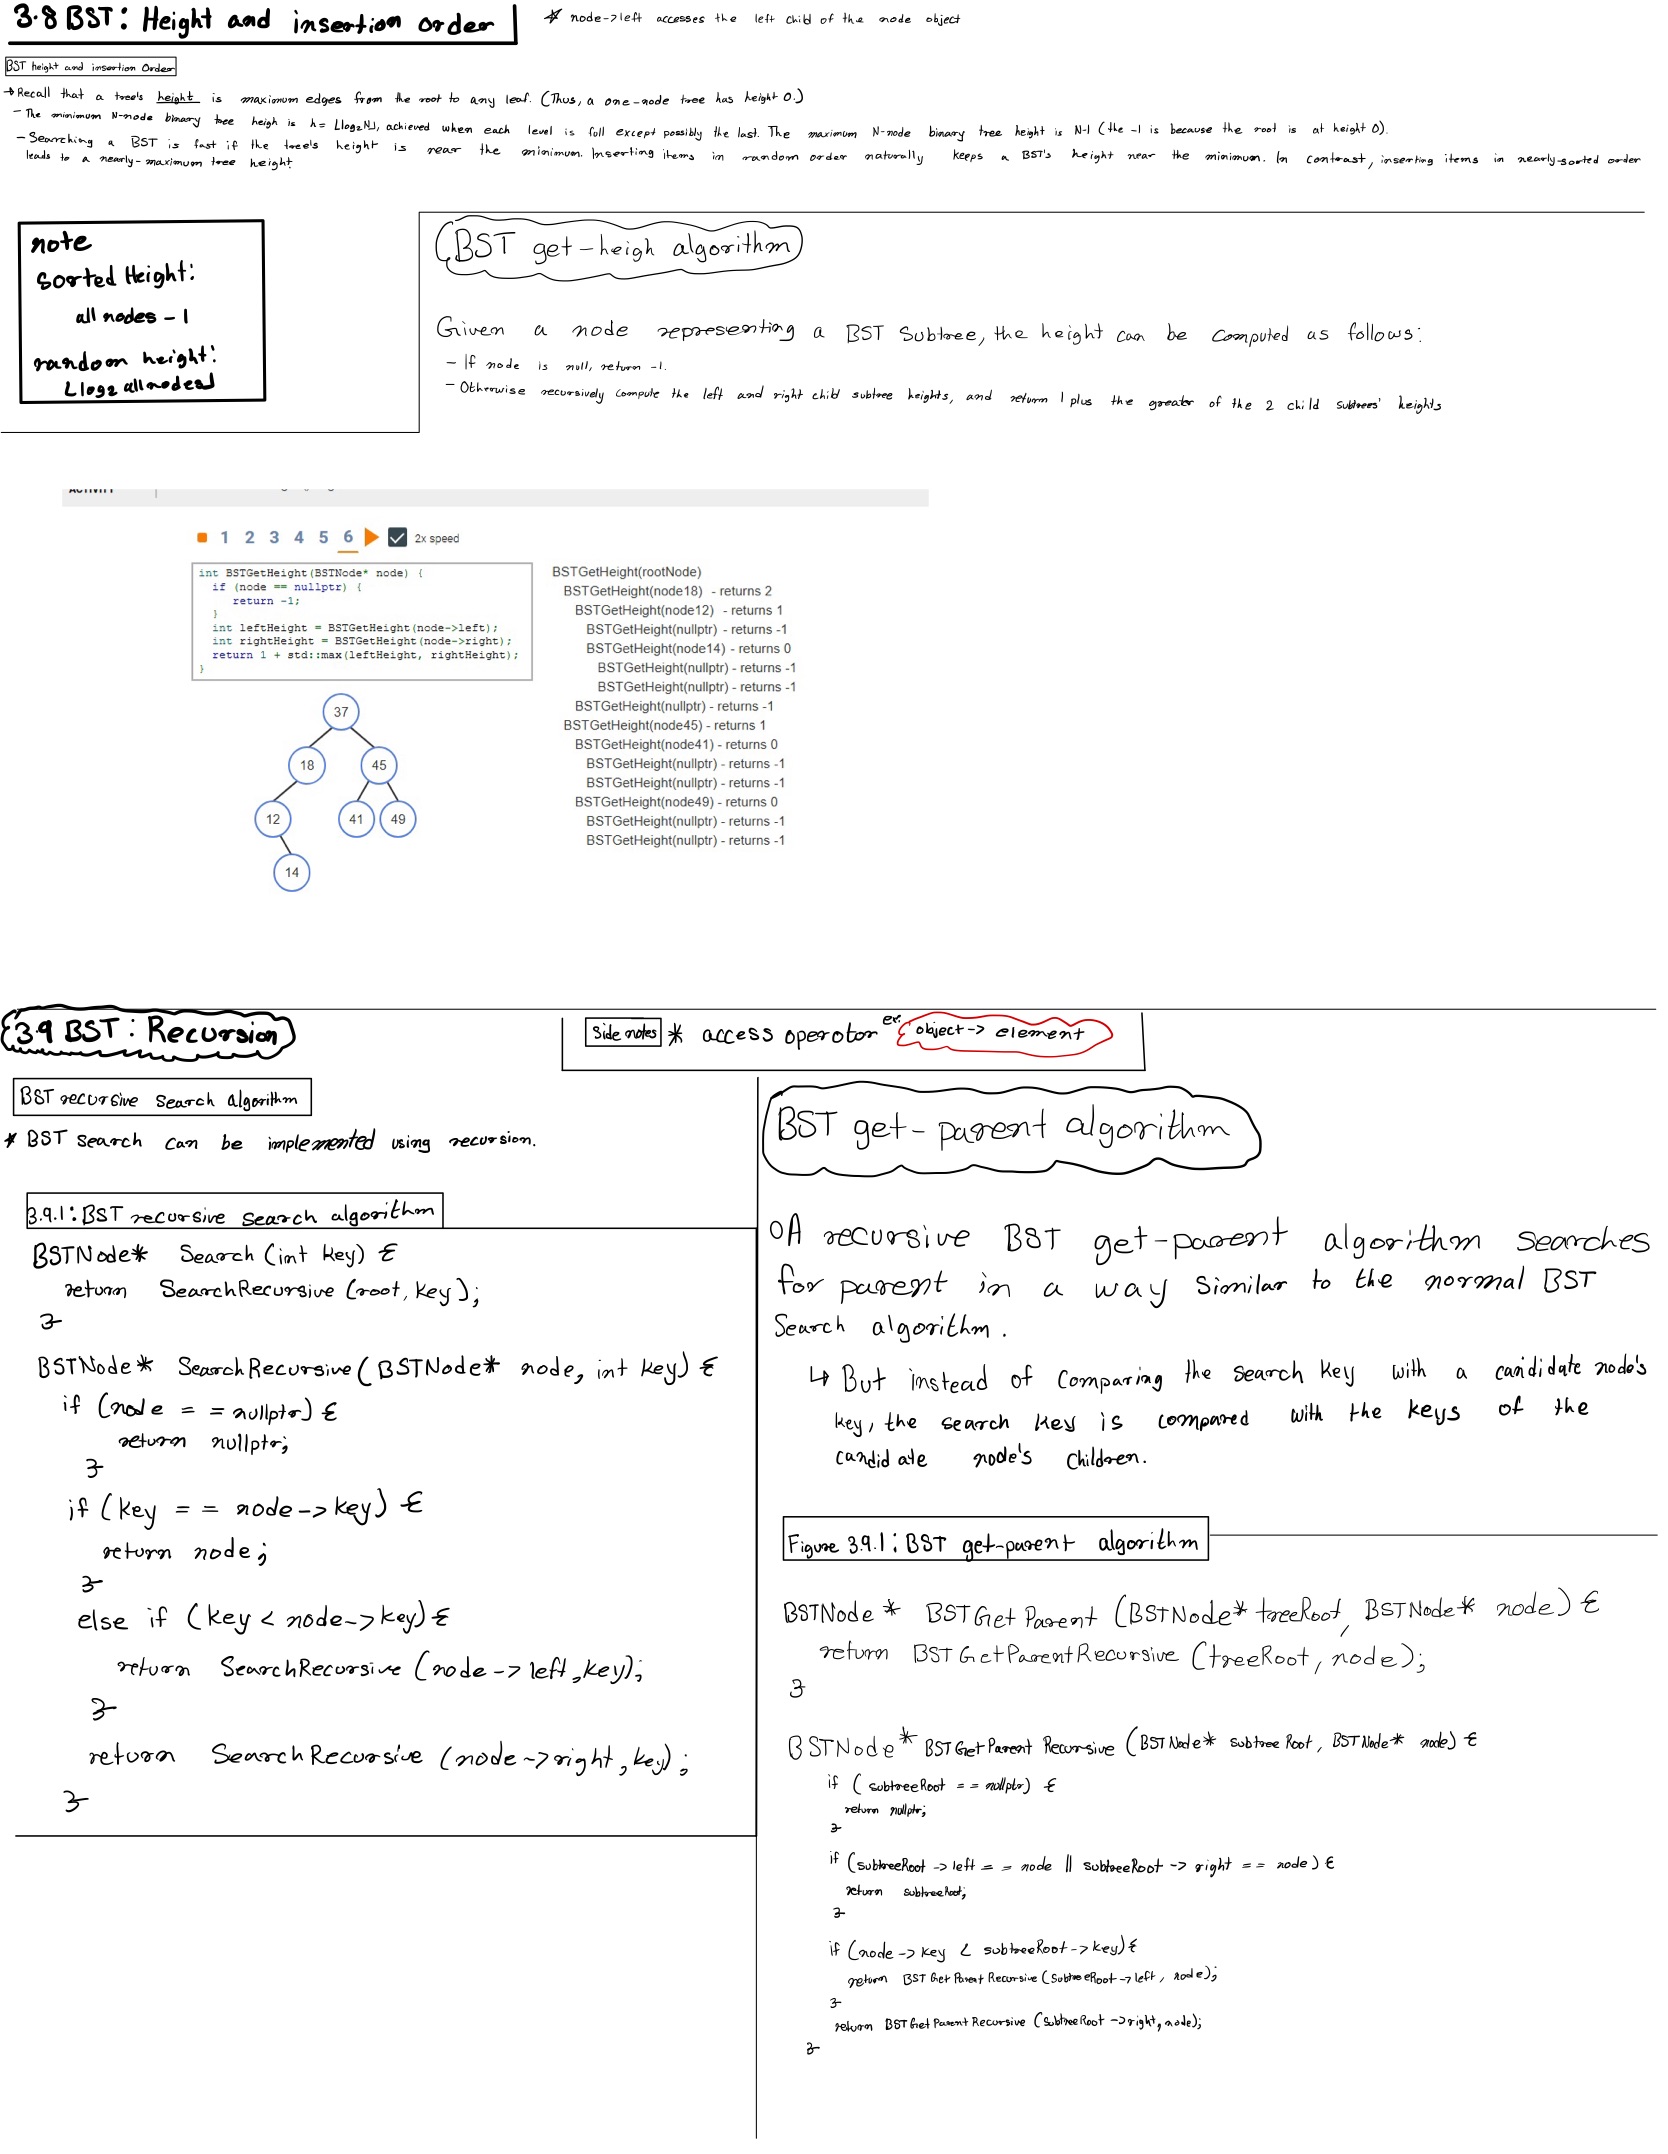 3.8 BST: Height and insertion order
* node->left accesses the left child of the node object
BST height and insertion Order
→ Recall that a tree's height is maximum edges from the root to any leaf. (Thus, a one-node tree has height 0.)
- The minimum N-node binary tree heigh is h= ⌊log2N⌋, achieved when each level is full except possibly the last. The maximum N-node binary tree height is N-1 (the -1 is because the root is at height 0).
- Searching a BST is fast if the tree's height is near the minimum. Inserting items in random order naturally keeps a BST's height near the minimum. In contrast, inserting items in nearly-sorted order
leads to a nearly-maximum tree height
note
sorted Height:
all nodes - 1
random height:
⌊log2 all nodes⌋
BST get-heigh algorithm
Given a node representing a BST Subtree, the height can be computed as follows:
- If node is null, return -1.
- Otherwise recursively compute the left and right child subtree heights, and return 1 plus the greater of the 2 child subtrees' heights
1 2 3 4 5 6 2x speed
int BSTGetHeight(BSTNode* node) {
if (node == nullptr) {
return -1;
}
int leftHeight = BSTGetHeight(node->left);
int rightHeight = BSTGetHeight(node->right);
return 1 + std::max(leftHeight, rightHeight);
}
37
18 45
12 41 49
14
BSTGetHeight(rootNode)
BSTGetHeight(node18) - returns 2
BSTGetHeight(node12) - returns 1
BSTGetHeight(nullptr) - returns -1
BSTGetHeight(node14) - returns 0
BSTGetHeight(nullptr) - returns -1
BSTGetHeight(nullptr) - returns -1
BSTGetHeight(nullptr) - returns -1
BSTGetHeight(node45) - returns 1
BSTGetHeight(node41) - returns 0
BSTGetHeight(nullptr) - returns -1
BSTGetHeight(nullptr) - returns -1
BSTGetHeight(node49) - returns 0
BSTGetHeight(nullptr) - returns -1
BSTGetHeight(nullptr) - returns -1
3.9 BST: Recursion
Side notes * access operotor ex: object-> element
BST recursive search algorithm
* BST search can be implemented using recursion.
3.9.1: BST recursive search algorithm
BSTNode* Search (int key) {
return SearchRecursive (root, key);
}
BSTNode* SearchRecursive (BSTNode* node, int key) {
if (node == nullptr) {
return nullptr;
}
if (key == node->key) {
return node;
}
else if (key < node->key) {
return SearchRecursive (node->left, key);
}
return SearchRecursive (node->right, key);
}
BST get-parent algorithm
○ A recursive BST get-parent algorithm searches
for parent in a way similar to the normal BST
Search algorithm.
↳ But instead of comparing the search key with a candidate node's
key, the search key is compared with the keys of the
candidate node's children.
Figure 3.9.1: BST get-parent algorithm
BSTNode* BSTGetParent (BSTNode* treeRoot, BSTNode* node) {
return BSTGetParentRecursive (treeRoot, node);
}
BSTNode* BSTGetParentRecursive (BSTNode* subtreeRoot, BSTNode* node) {
if (subtreeRoot == nullptr) {
return nullptr;
}
if (subtreeRoot->left == node || subtreeRoot->right == node) {
return subtreeRoot;
}
if (node->key < subtreeRoot->key) {
return BSTGetParentRecursive (SubtreeRoot->left, node);
}
return BSTGetParentRecursive (SubtreeRoot->right, node);
}